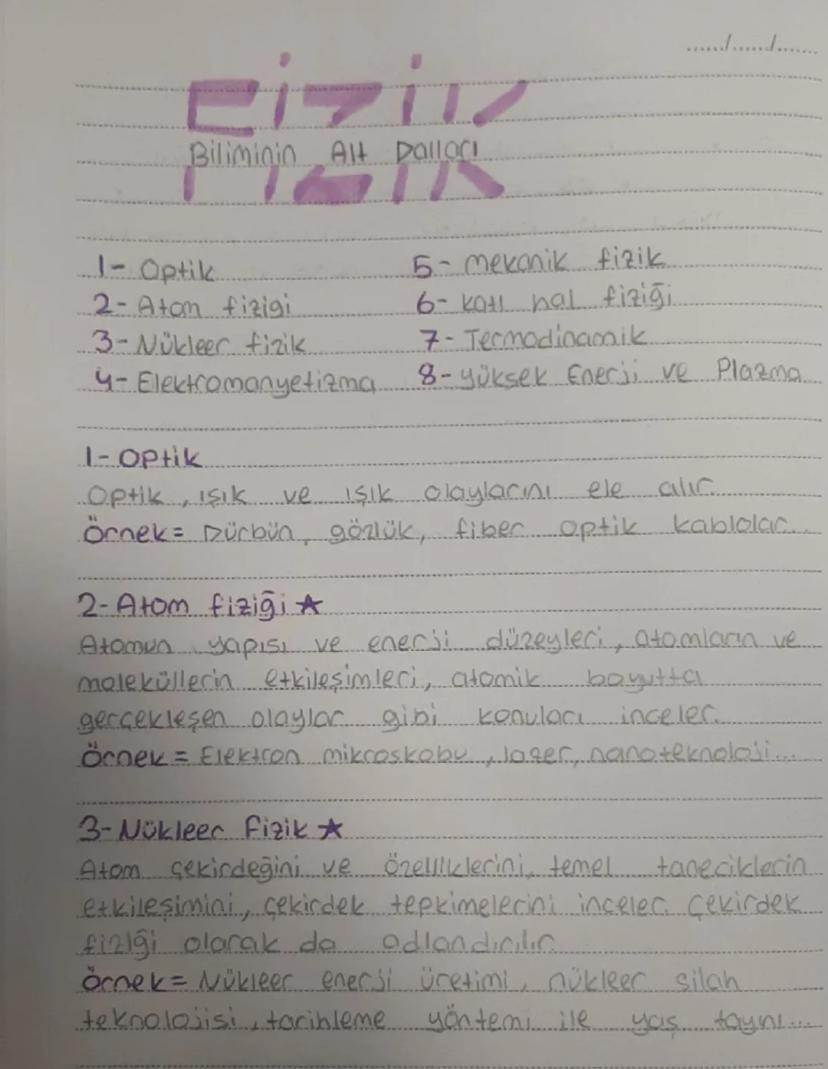 ...../...../.....
FİZİK
Biliminin Alt Dalları
1- Optik
2- Atom fizigi
3- Nükleer fizik
4- Elektromanyetizma
5- mekanik fizik
6- katı hal fiziği
7- Termodinamik
8- yüksek Enerji ve Plazma
1- Optik
Optik, ışık ve ışık olaylarını ele alır.
Örnek = Dürbün, gözlük, fiber optik kablolar...
2- Atom fiziği ★
Atomun yapısı ve enerji düzeyleri, atomların ve
moleküllerin etkileşimleri, atomik boyutta
gerçekleşen olaylar gibi konuları inceler.
Örnek = Elektron mikroskobu, lazer, nanoteknoloji...
3- Nükleer Fizik ★
Atom çekirdeğini ve özelliklerini, temel taneciklerin
etkileşimini, çekirdek tepkimelerini inceler. Çekirdek
fiziği olarak da adlandırılır.
Örnek = Nükleer enerji üretimi, nükleer silah
teknolojisi, tarihleme yöntemi ile yaş tayını...